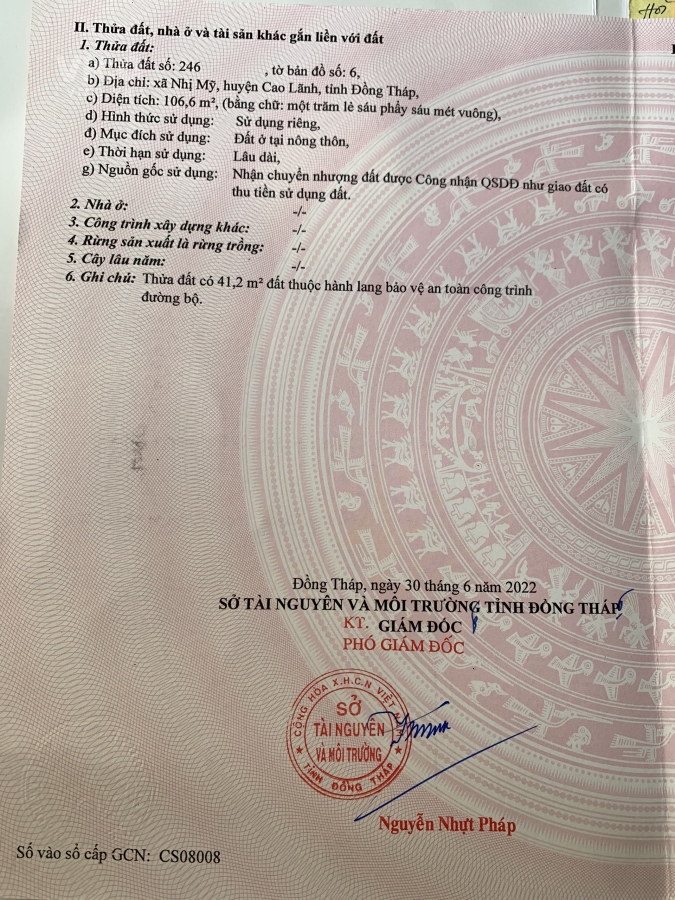 II. Thửa đất, nhà ở và tài sản khác gắn liền với đất
1. Thửa đất:
a) Thửa đất số: 246 , tờ bản đồ số: 6,
b) Địa chỉ: xã Nhị Mỹ, huyện Cao Lãnh, tỉnh Đồng Tháp,
c) Diện tích: 106,6 m², (bằng chữ: một trăm lẻ sáu phẩy sáu mét vuông),
d) Hình thức sử dụng: Sử dụng riêng,
đ) Mục đích sử dụng: Đất ở tại nông thôn,
e) Thời hạn sử dụng: Lâu dài,
g) Nguồn gốc sử dụng: Nhận chuyển nhượng đất được Công nhận QSDĐ như giao đất có
thu tiền sử dụng đất.
2. Nhà ở: -/-
3. Công trình xây dựng khác: -/-
4. Rừng sản xuất là rừng trồng: -/-
5. Cây lâu năm: -/-
6. Ghi chú: Thửa đất có 41,2 m² đất thuộc hành lang bảo vệ an toàn công trình
đường bộ.
Đồng Tháp, ngày 30 tháng 6 năm 2022
SỞ TÀI NGUYÊN VÀ MÔI TRƯỜNG TỈNH ĐỒNG THÁP
KT. GIÁM ĐỐC
PHÓ GIÁM ĐỐC
CỘNG HÒA X.H.C.N VIỆT NAM
SỞ
TÀI NGUYÊN
VÀ MÔI TRƯỜNG
TỈNH ĐỒNG THÁP
Nguyễn Nhựt Pháp
Số vào sổ cấp GCN: CS08008